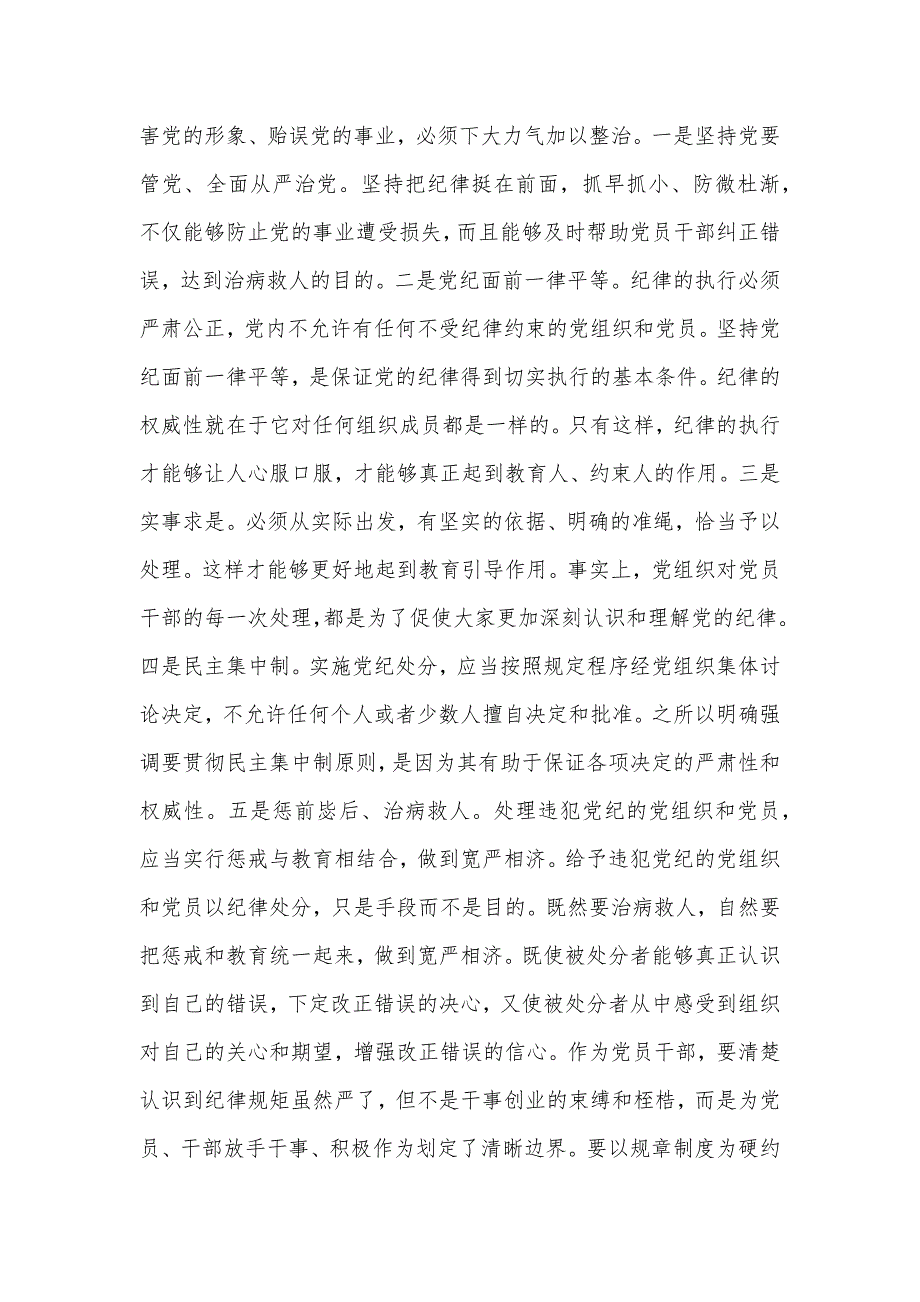 害党的形象、贻误党的事业，必须下大力气加以整治。一是坚持党要
管党、全面从严治党。坚持把纪律挺在前面，抓早抓小、防微杜渐，
不仅能够防止党的事业遭受损失，而且能够及时帮助党员干部纠正错
误，达到治病救人的目的。二是党纪面前一律平等。纪律的执行必须
严肃公正，党内不允许有任何不受纪律约束的党组织和党员。坚持党
纪面前一律平等，是保证党的纪律得到切实执行的基本条件。纪律的
权威性就在于它对任何组织成员都是一样的。只有这样，纪律的执行
才能够让人心服口服，才能够真正起到教育人、约束人的作用。三是
实事求是。必须从实际出发，有坚实的依据、明确的准绳，恰当予以
处理。这样才能够更好地起到教育引导作用。事实上，党组织对党员
干部的每一次处理，都是为了促使大家更加深刻认识和理解党的纪律。
四是民主集中制。实施党纪处分，应当按照规定程序经党组织集体讨
论决定，不允许任何个人或者少数人擅自决定和批准。之所以明确强
调要贯彻民主集中制原则，是因为其有助于保证各项决定的严肃性和
权威性。五是惩前毖后、治病救人。处理违犯党纪的党组织和党员，
应当实行惩戒与教育相结合，做到宽严相济。给予违犯党纪的党组织
和党员以纪律处分，只是手段而不是目的。既然要治病救人，自然要
把惩戒和教育统一起来，做到宽严相济。既使被处分者能够真正认识
到自己的错误，下定改正错误的决心，又使被处分者从中感受到组织
对自己的关心和期望，增强改正错误的信心。作为党员干部，要清楚
认识到纪律规矩虽然严了，但不是干事创业的束缚和桎梏，而是为党
员、干部放手干事、积极作为划定了清晰边界。要以规章制度为硬约